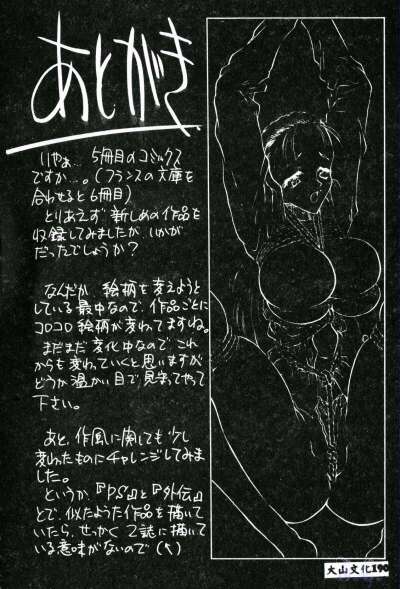 あとがき
いやぁ…5冊目のコミックス
ですか…。(フランスの文庫を
合わせると6冊目)
とりあえず新しめの作品を
収録してみましたが、いかが
だったでしょうか?
なんだか、絵柄を変えようと
している最中なので、作品ごとに
コロコロ絵柄が変わってますね。
まだまだ変化中なので、これ
からも変わっていくと思いますが
どうか温かい目で見守ってやって
下さい。
あと、作風に関しても少し
変わったものにチャレンジしてみま
した。
というか、『PS』と『外伝』
とで、似たような作品を描いて
いたら、せっかく2誌に描いて
いる意味がないので(笑)
大山文化190